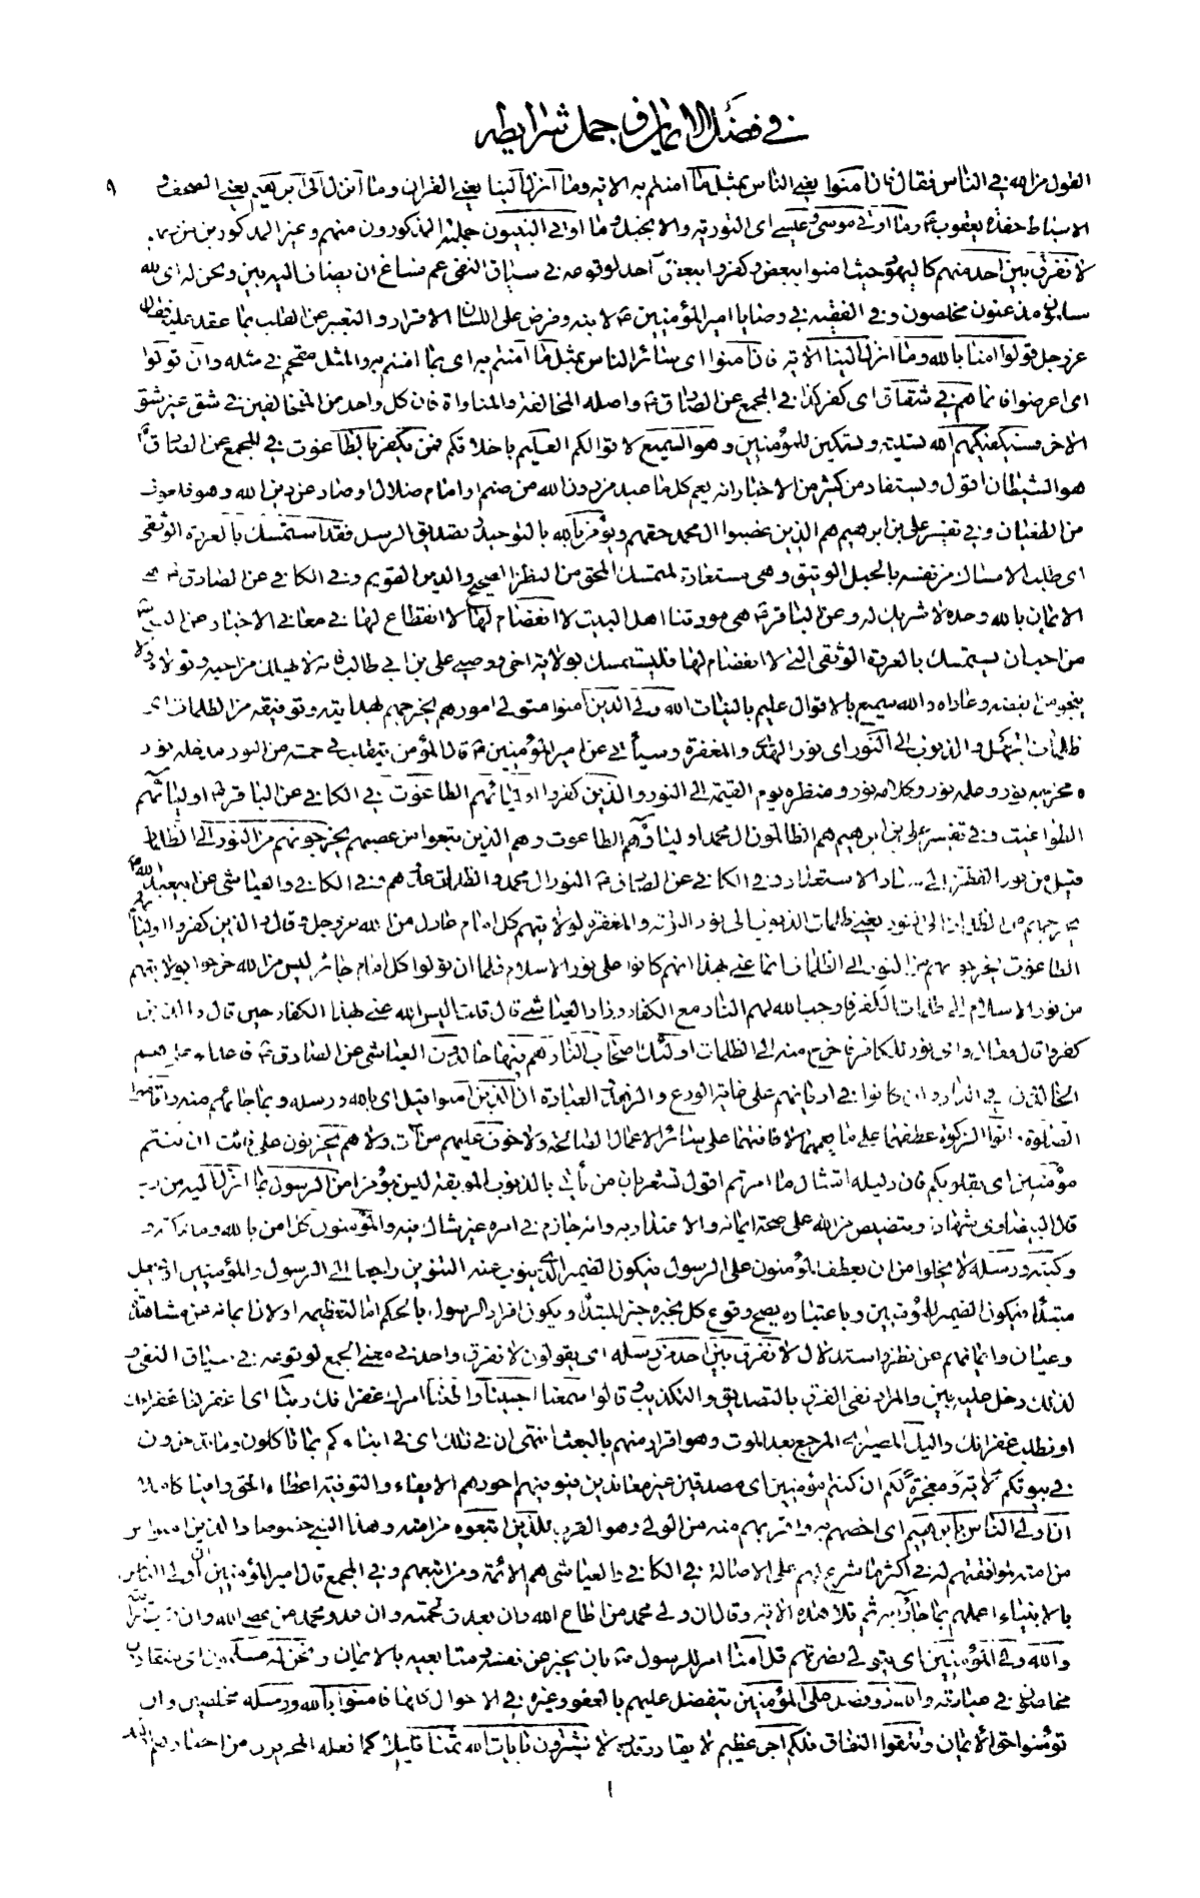 في فضل الايمان و جمل شرايطه
٩
القول من الله في الناس فقال فان آمنوا يعني الناس بمثل ما امنتم به الاية وما انزل الينا يعني القران وما انزل الى ابرهيم يعني الصحف و
الاسباط حفدة يعقوب وما اوتي موسى وعيسى اى التورية والانجيل وما اوتي النبيون جملة المذكورون منهم وغير المذكورين من ربهم
لا نفرق بين احد منهم كاليهود حيث امنوا ببعض وكفروا ببعض احد لوقوعه في سياق النفي عم فساغ ان يضاف اليه بين ونحن له اى لله
مسلمون مذعنون مخلصون وفي الفقيه في وصايا امير المؤمنين ع لابنه وفرض على اللسان الاقرار والتعبير عن القلب بما عقد عليه فقال
عز وجل قولوا امنا بالله وما انزل الينا الاية فان آمنوا اى سائر الناس بمثل ما آمنتم به اى بما امنتم به والمثل مقحم في مثله وان تولوا
اى اعرضوا فانما هم في شقاق اى كفر كذا في المجمع عن الصادق ع واصله المخالفة والمناواة فان كل واحد من المتخالفين في شق غير شق
الاخر فسيكفيكهم الله تسلية وتسكين للمؤمنين وهو السميع لاقوالكم العليم باخلاقكم فمن يكفر بالطاغوت في المجمع عن الصادق ع
هو الشيطان اقول ويستفاد من كثير من الاخبار انه يعم كل ما عبد من دون الله من صنم او امام ضلال او صاد عن دين الله وهو فاعوف
من الطغيان وفي تفسير علي بن ابرهيم هم الذين غصبوا ال محمد حقهم ويؤمن بالله بالتوحيد وتصديق الرسل فقد استمسك بالعروة الوثقى
اى طلب الامساك من نفسه بالحبل الوثيق وهي مستعارة لمتمسك المحق من النظر الصحيح والدين القويم وفي الكافي عن الصادق ع هي
الايمان بالله وحده لا شريك له وعن الباقر ع هي مودتنا اهل البيت لا انفصام لها لا انقطاع لها في معاني الاخبار عن النبي ص
من احب ان يستمسك بالعروة الوثقى التي لا انفصام لها فليستمسك بولاية اخي ووصيي علي بن ابي طالب فانه لا يهلك من احبه وتولاه ولا
ينجو من ابغضه وعاداه والله سميع بالاقوال عليم بالنيات الله ولي الذين آمنوا متولي امورهم يخرجهم بهدايته وتوفيقه من الظلمات اى
ظلمات الجهل والذنوب الى النور اى نور الهدى والمغفرة وسيأتي عن امير المؤمنين ع قال المؤمن يتقلب في خمسة من النور مدخله نور
ومخرجه نور وعلمه نور وكلامه نور ومنظره يوم القيمة الى النور والذين كفروا اولياؤهم الطاغوت في الكافي عن الباقر ع اولياؤهم
الطواغيت وفي تفسير علي بن ابرهيم هم الظالمون ال محمد اولياؤهم الطاغوت وهم الذين تبعوا من غصبهم يخرجونهم من النور الى الظلمات
قيل من نور الفطرة الى فساد الاستعداد وفي الكافي عن الصادق ع النور ال محمد والظلمات عدوهم وفي الكافي والعياشي عن ابيعبد الله ع
يخرجهم من الظلمات الى النور يعني ظلمات الذنوب الى نور التوبة والمغفرة لولايتهم كل امام عادل من الله عز وجل وقال والذين كفروا اولياؤهم
الطاغوت يخرجونهم من النور الى الظلمات انما عنى بهذا انهم كانوا على نور الاسلام فلما ان تولوا كل امام جائر ليس من الله خرجوا بولايتهم
من نور الاسلام الى ظلمات الكفر فاوجب الله لهم النار مع الكفار وزاد العياشي قال قلت اليس الله عنى بهذا الكفار حين قال والذين
كفروا قال فقال واى نور للكافر فاخرج منه الى الظلمات اولئك اصحاب النار هم فيها خالدون العياشي عن الصادق ع فاعداء علي هم
الخالدون في النار وان كانوا في اديانهم على غاية الورع والزهد والعبادة ان الذين امنوا قيل اى بالله ورسله وبما جائهم منه واقاموا
الصلوة واتوا الزكوة عطفهما على ما يعمهما لانافتهما على سائر الاعمال الصالحة ولا خوف عليهم من ات ولا هم يحزنون على فائت ان كنتم
مؤمنين اى بقلوبكم فان دليله امتثال ما امرتم اقول تشعر بان من يأت بالذنوب الموبقة ليس بمؤمن امن الرسول بما انزل اليه من ربه
قال البيضاوى شهادة وتنصيص من الله على صحة ايمانه والاعتداد به وانه جازم في امره غير شاك فيه والمؤمنون كل امن بالله وملائكته و
وكتبه ورسله لا يخلو من ان يعطف المؤمنون على الرسول فيكون الضمير الذى ينوب عنه التنوين راجعا الى الرسول والمؤمنين او يجعل
مبتدأ فيكون الضمير للمؤمنين وباعتباره يصح وقوع كل بخبره خبر المبتدأ ويكون افراد الرسول بالحكم اما لتعظيمه او لان ايمانه عن مشاهدة
وعيان وايمانهم عن نظر واستدلال لا نفرق بين احد من رسله اى يقولون لا نفرق واحد في معنى الجمع لوقوعه في سياق النفي و
لذلك دخل عليه بين والمراد نفي الفرق بالتصديق والتكذيب وقالوا سمعنا اجبنا واطعنا امرك غفرانك ربنا اى اغفر لنا غفرانك
او نطلب غفرانك واليك المصير المرجع بعد الموت وهو اقرار منهم بالبعث انتهى ان في ذلك اى في انبائكم بما تاكلون وما تدخرون
في بيوتكم لاية ومعجزة لكم ان كنتم مؤمنين اى مصدقين غير معاندين فيوفيهم اجورهم الايفاء والتوفية اعطاء الحق وافيا كاملا
ان اولى الناس بابرهيم اى اخصهم به واقربهم منه من الولي وهو القرب للذين اتبعوه من امته وهذا النبي خصوصا والذين امنوا
من امته لموافقتهم له في اكثر ما شرع لهم على الاصالة في الكافي والعياشي هم الائمة ومن اتبعهم وفي المجمع قال امير المؤمنين ان اولى الناس
بالانبياء اعملهم بما جاؤا به ثم تلا هذه الاية وقال ان ولي محمد من اطاع الله وان بعدت لحمته وان عدو محمد من عصى الله وان قربت قرابته
والله ولي المؤمنين اى يتولى نصرتهم قل آمنا امر للرسول ص بان يخبر عن نفسه ومتابعيه بالايمان ونحن له مسلمون اى منقادون
مخلصون في عبادته والله ذو فضل على المؤمنين يتفضل عليهم بالعفو وغيره في الاحوال كلها فامنوا بالله ورسله مخلصين وان
تؤمنوا حق الايمان وتتقوا النفاق فلكم اجر عظيم لا يقادر قدره لا يشترون بايات الله ثمنا قليلا كما فعله المحرفون من احبارهم
١